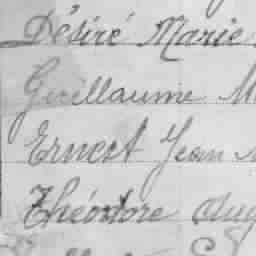 Désiré Marie
Guillaume M
Ernest Jean M
Théodore Aug